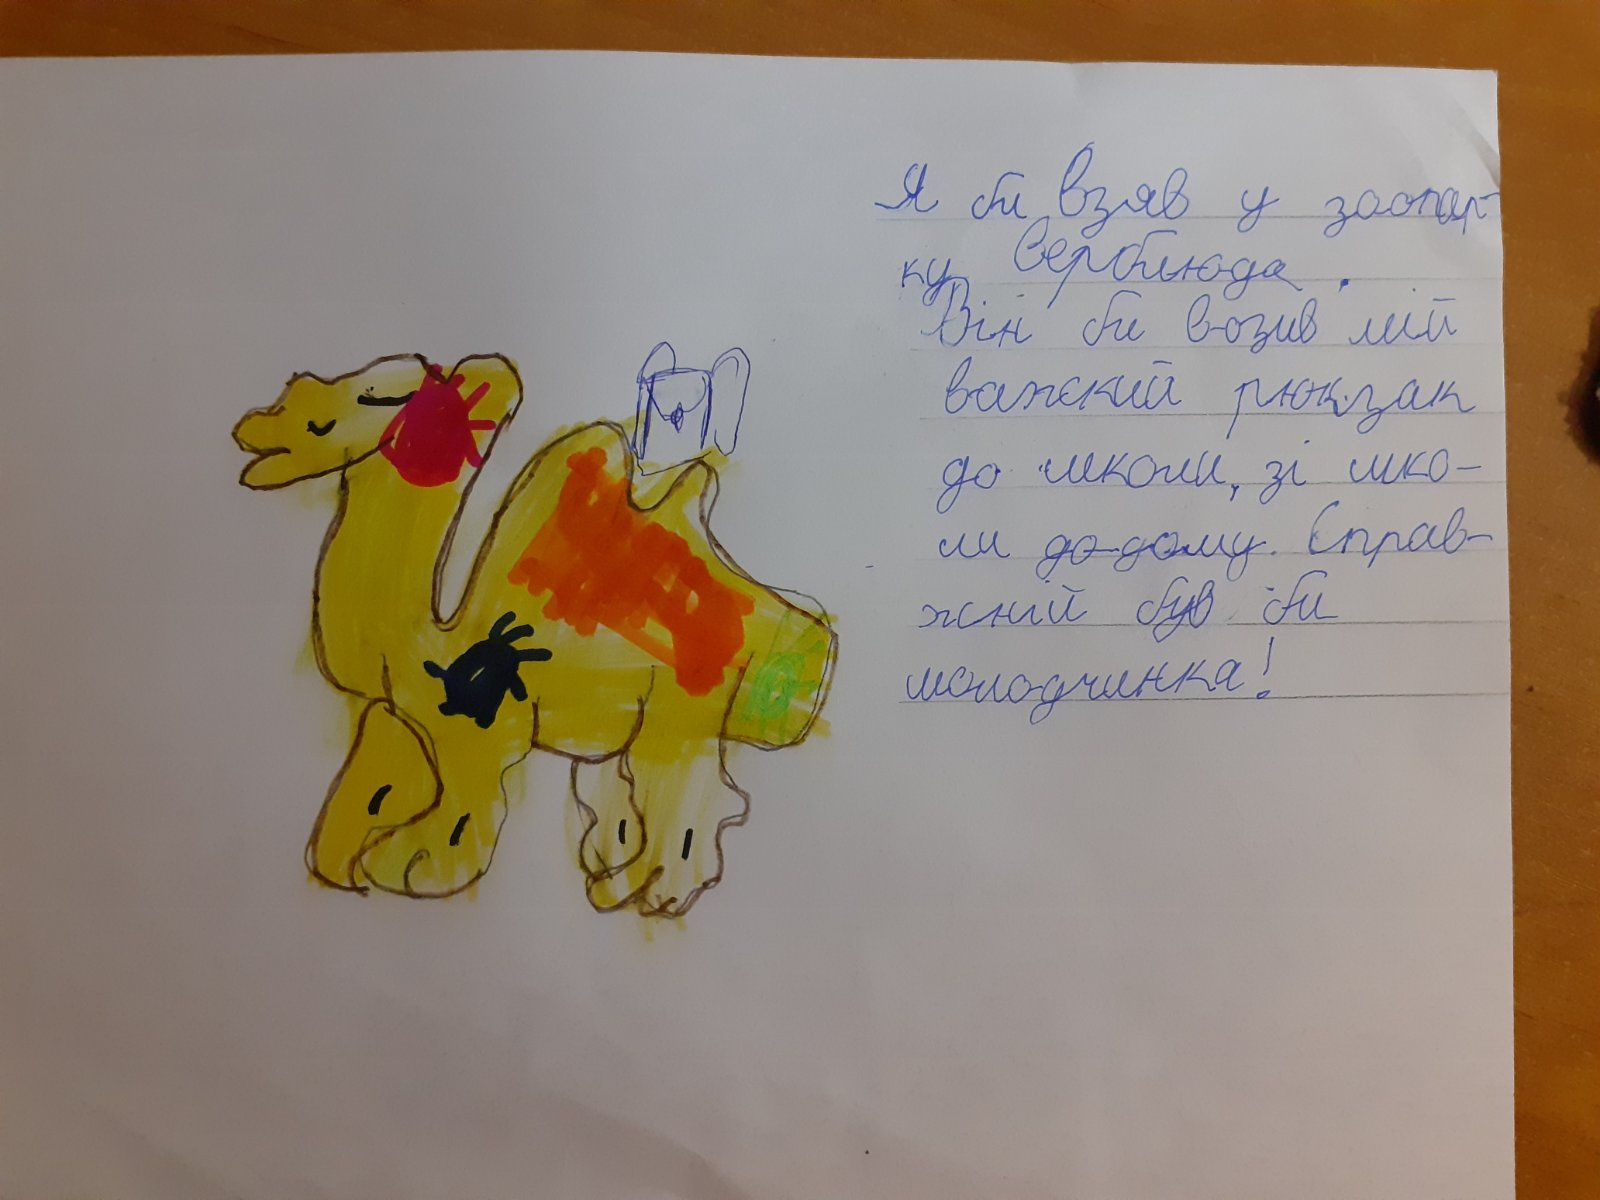 Я би взяв у зоопар-
ку Верблюда.
Він би возив мій
важкий рюкзак
до школи, зі шко-
ли до-дому. Справ-
жній був би
молодчинка!